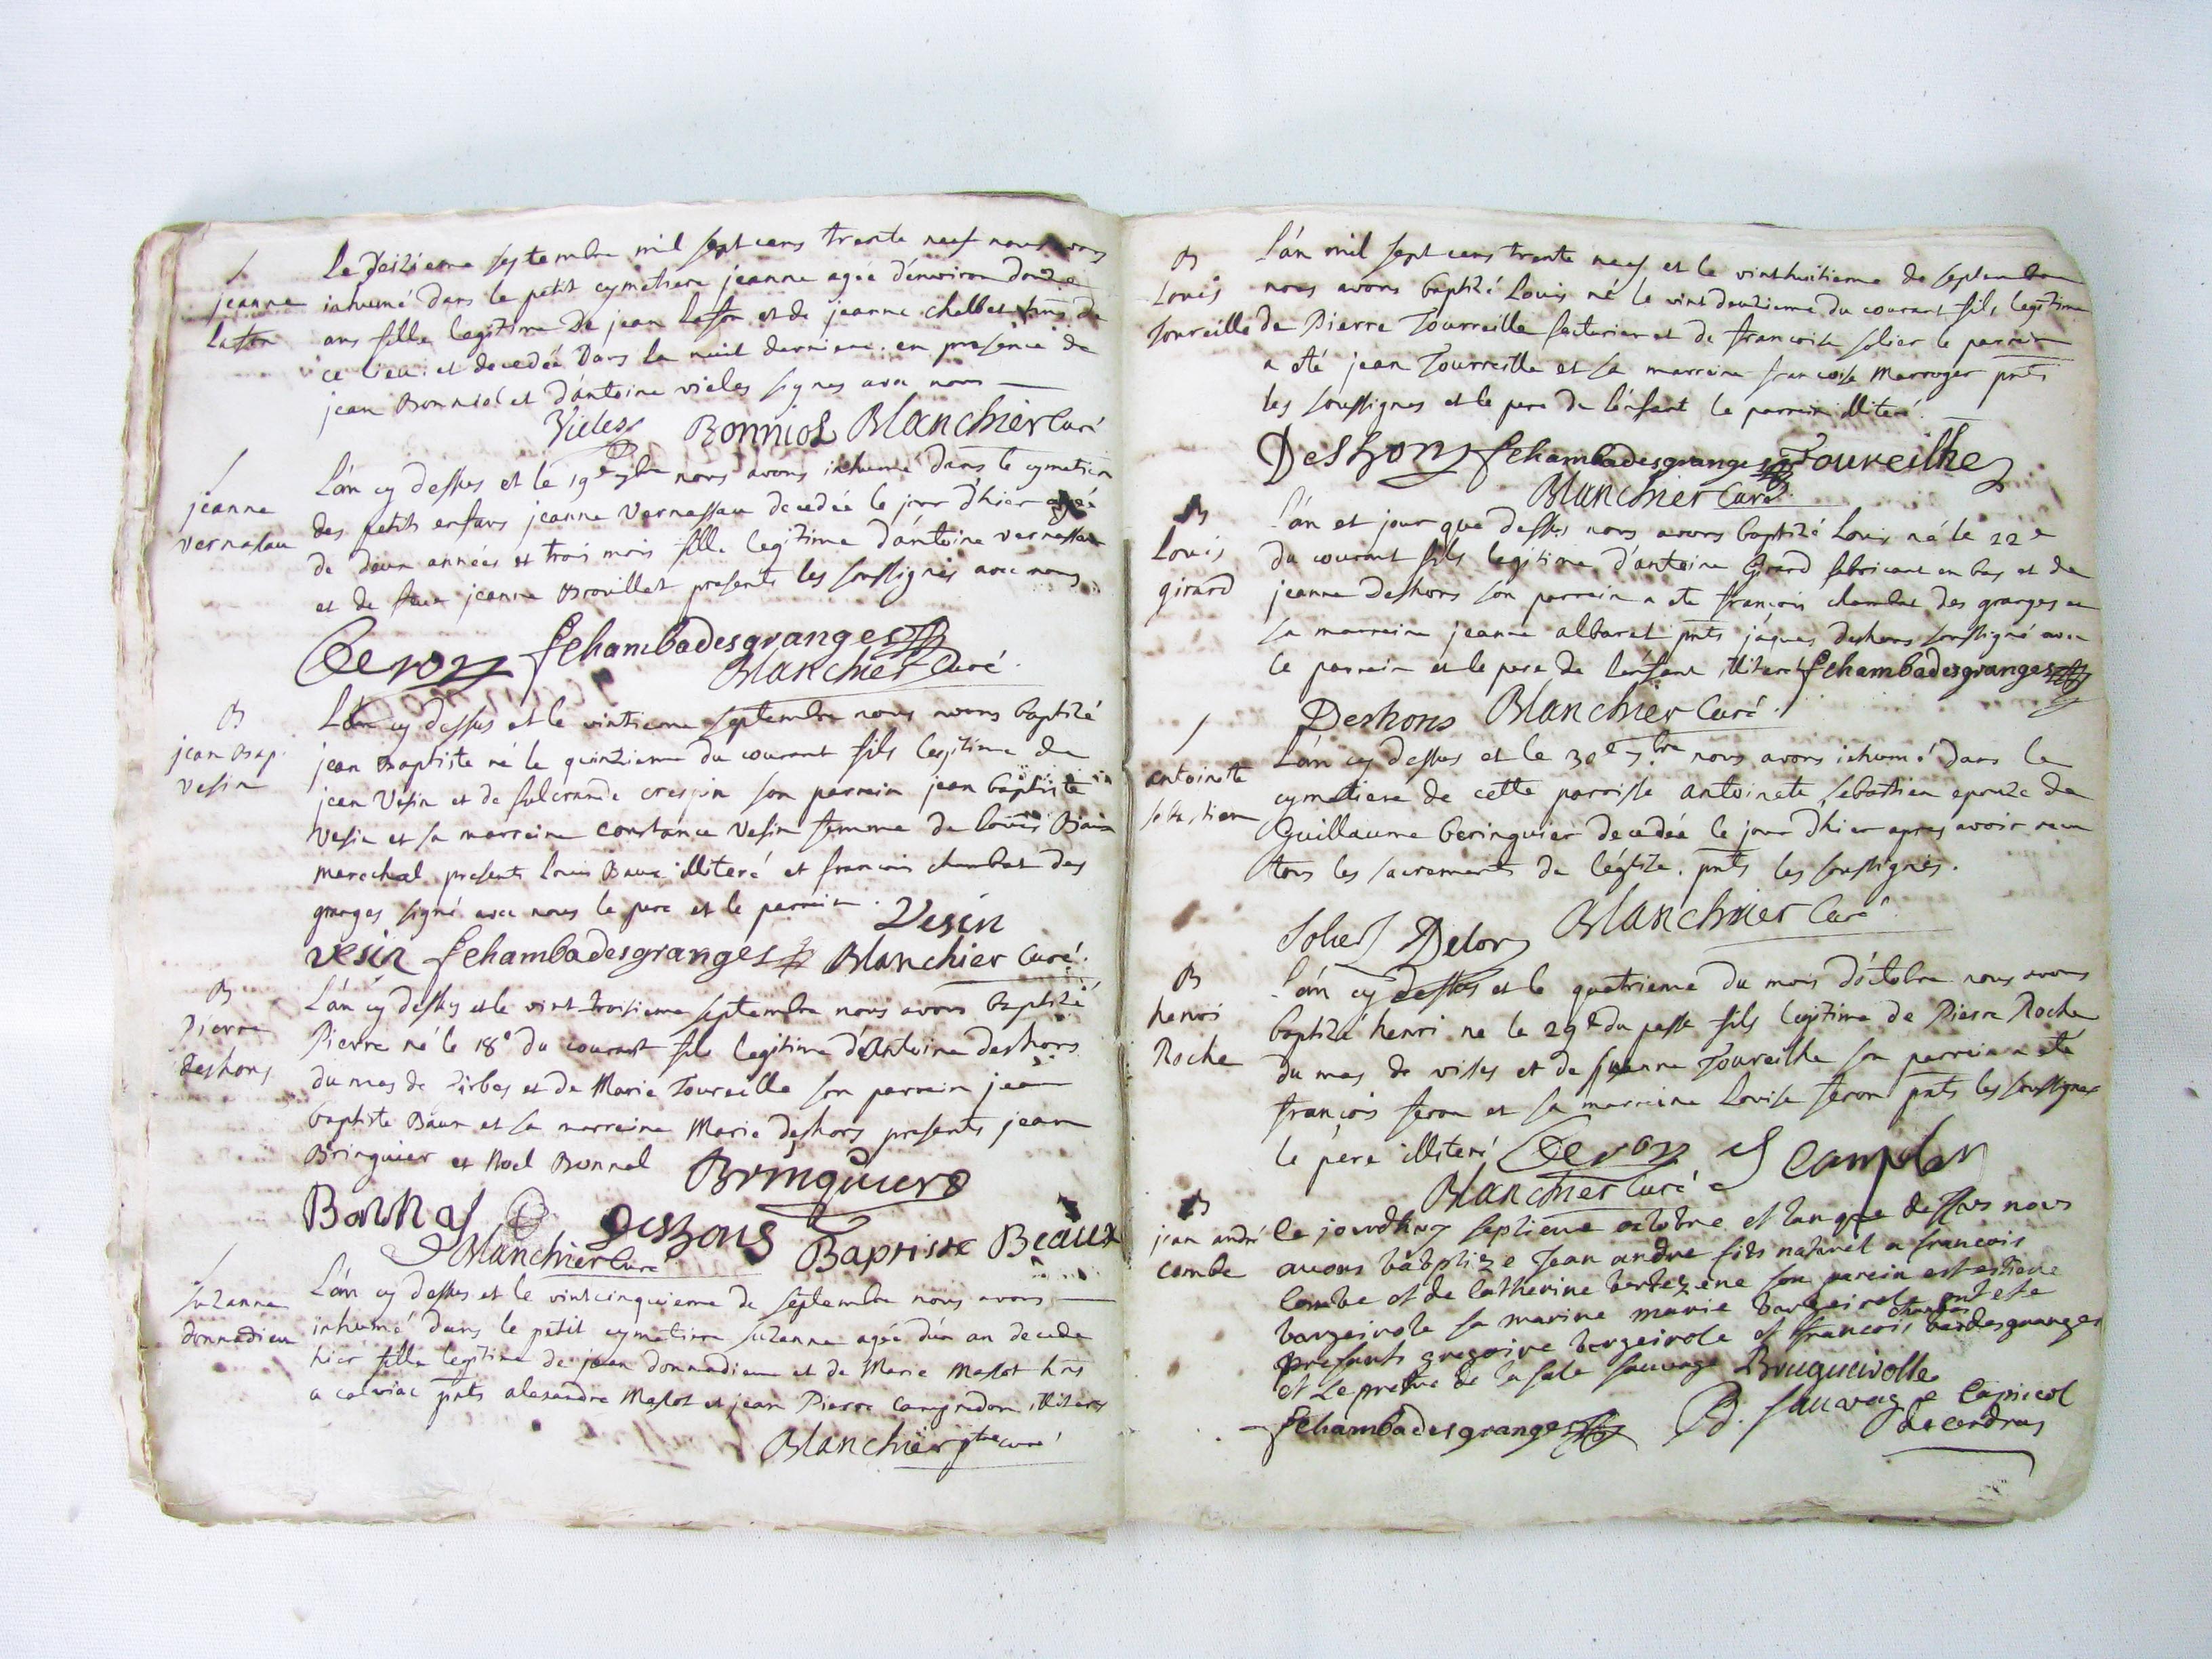 Le seizieme septembre mil sept cens trente neuf nous avons
jeanne inhumé dans le petit cymetiere jeanne agée d'environ douze
ans fille legitime De jean et de jeanne
ce lieu et decedée Dans la nuit derniere. en presence de
jean Bonniol et d'antoine vieles signes avec nous
Vieles Bonniol Blanchier Curé
L'an cy dessus et le 19e 7bre nous avons inhumé dans le cymetiere
jeanne des petits enfans jeanne Vernassau decedée le jour d'hier agée
vernasau de deux années et trois mois fille legitime d'antoine vernassau
et de jeanne Brouillet presents les soussignés avec nous
fchambadesgranges
Blanchier Curé.
B L'an cy dessus et le vintieme septembre nous avons baptizé
jean Bap. jean Baptiste né le quinzieme du courant fils legitime de
vesin jean Vesin et de fulcrande crespin son parrein jean baptiste
vesin et sa marreine constance vesin femme de louis Baux
marechal presents louis Baux illiteré et francois chambat des
granges signé avec nous le pere et le parrein. Vesin
vesin fchambadesgranges Blanchier Curé.
B L'an cy dessus et le vint-troisieme septembre nous avons baptizé
Pierre Pierre né le 18e du courant fils legitime d'Antoine deshons
deshons du mas de et de Marie Toureille son parrein jean
baptiste Baux et sa marreine Marie deshons presents jean
Bringuier et Noel Bonnal Bringuier
Bonnal Deshons Baptiste Beaux
Blanchier Curé
suzanne L'an cy dessus et le vintcinquieme de septembre nous avons
donnadieu inhumé dans le petit cymetiere suzanne agée d'un an decedée
hier fille legitime de jean donnadieu et de Marie Maslot hns
a calviac pnts alexandre Maslot et jean Pierre Campredon illiteres
Blanchier ptre curé
B L'an mil sept cens trente neuf et le vinthuitieme de septembre
Louis nous avons baptizé Louis né le vintdeuzieme du courant fils legitime
Toureille de Pierre Tourreille facturier et de francoise solier le parrein
a eté jean Tourreille et sa marreine francoise Marroger pnts
les soussignes et le pere de l'enfant le parrein illiteré.
Deshons fchambadesgranges Toureilhe
Blanchier Curé.
B L'an et jour que dessus nous avons baptizé Louis né le 22e
Louis du courant fils legitime d'antoine Girard fabricant en bas et de
girard jeanne deshons son parrein a eté francois chambat des granges et
sa marreine jeanne albaret pnts jaques deshons soussigné avec
le parrein et le pere de l'enfant illiteré fchambadesgranges
Deshons Blanchier Curé.
L'an cy dessus et le 30e 7bre nous avons inhumé dans le
antoinete cymetiere de cette parroisse antoinete sebastien epouze de
sebastien Guillaume beringuier decedée le jour d'hier apres avoir receu
tous les sacrements de l'églize. pnts les soussignés.
Solier Delon Blanchier Curé
B L'an cy dessus et le quatrieme du mois d'octobre nous avons
henri baptizé henri né le 29e du passé fils legitime de Pierre Roche
Roche du mas de et de suzanne Toureille son parrein a eté
françois et sa marreine Louise pnts les soussignes
le pére illiteré
Blanchier Curé
B le jourdhuy septieme octobre et lan que dessus nous
jean andré avons babptize Jean andre fils naturel a francois
combe Combe et de Catherine bertezene son parein est estiene
sa marine marie ont este
presents gregoire et francois chambadesgranges
et Le pretre de la sale sauvage Brugueirolle
fchambadesgranges sauvage Capiscol
de cendras